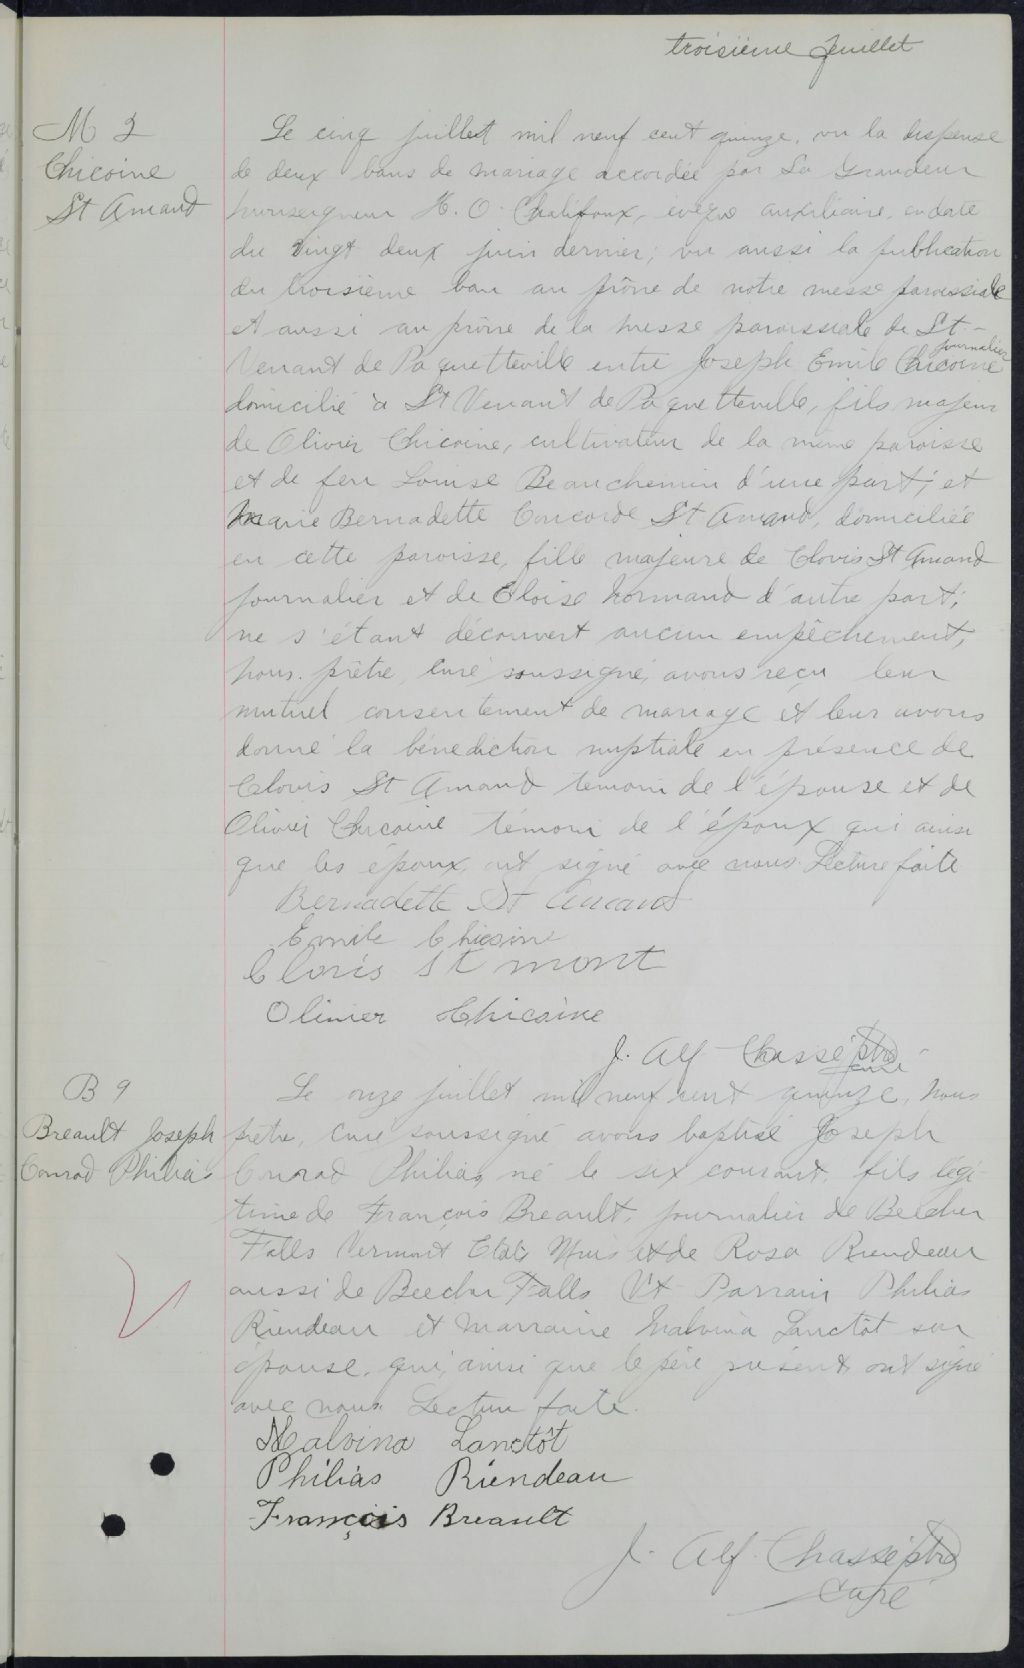 troisième feuillet
M 3
Chicoine
St Amand
Le cinq juillet mil neuf cent quinze, vu la dispense
de deux bans de mariage accordée par Sa Grandeur
Monseigneur H. O. Chalifoux, évêque auxiliaire, en date
du vingt deux juin dernier; vu aussi la publication
du troisième ban au prône de notre messe paroissiale
et aussi au prône de la messe paroissiale de St-
Venant de Paquetteville entre Joseph Emile Chicoine journalier
domicilié à St Venant de Paquetteville, fils majeur
de Olivier Chicoine, cultivateur de la même paroisse
et de feu Louise Beauchemin d'une part; et
Marie Bernadette Concorde St Amand, domiciliée
en cette paroisse, fille majeure de Clovis St Amand
journalier et de Eloise Normand d'autre part;
ne s'étant découvert aucun empêchement,
nous, prêtre, curé soussigné, avons reçu leur
mutuel consentement de mariage et leur avons
donné la bénédiction nuptiale en présence de
Clovis St Amand témoin de l'épouse et de
Olivier Chicoine témoin de l'époux qui ainsi
que les époux, ont signé avec nous. Lecture faite
Bernadette St Amand
Emile Chicoine
Cloris St mont
Olinier Chicoine
J. Alf Chassé ptre
curé
B 9
Breault Joseph
Conrad Philias
Le onze juillet mil neuf cent quinze, nous
prêtre, curé soussigné avons baptisé Joseph
Conrad Philias, né le six courant, fils légi-
time de François Breault, journalier de Beecher
Falls Vermont Etats Unis et de Rosa Riendeau
aussi de Beecher Falls Vt Parrain Philias
Riendeau et marraine Malvina Lanctôt son
épouse, qui, ainsi que le père présent, ont signé
avec nous. Lecture faite.
Malvina Lanctôt
Philias Riendeau
François Breault
J. Alf. Chassé ptre
curé